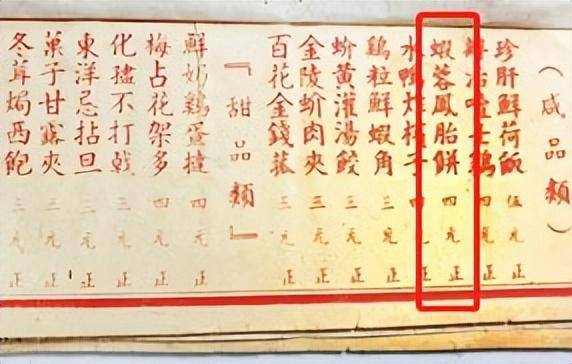 （咸品類）
珍肝鮮荷飯 伍元正
士鷄 元正
蝦蓉鳳胎餅 四元正
水鴨炸子 四元正
鷄粒鮮蝦角 三元正
蚧黃灌湯餃 三元正
金陵蚧肉夾 三元正
百花金錢菰 三元正
『甜品類』
鮮奶鷄蛋撻 四元正
梅占花架多 四元正
化不打戟 三元正
東洋忌拈旦 三元正
菓子甘露夾 三元正
冬茸焗西飽 三元正